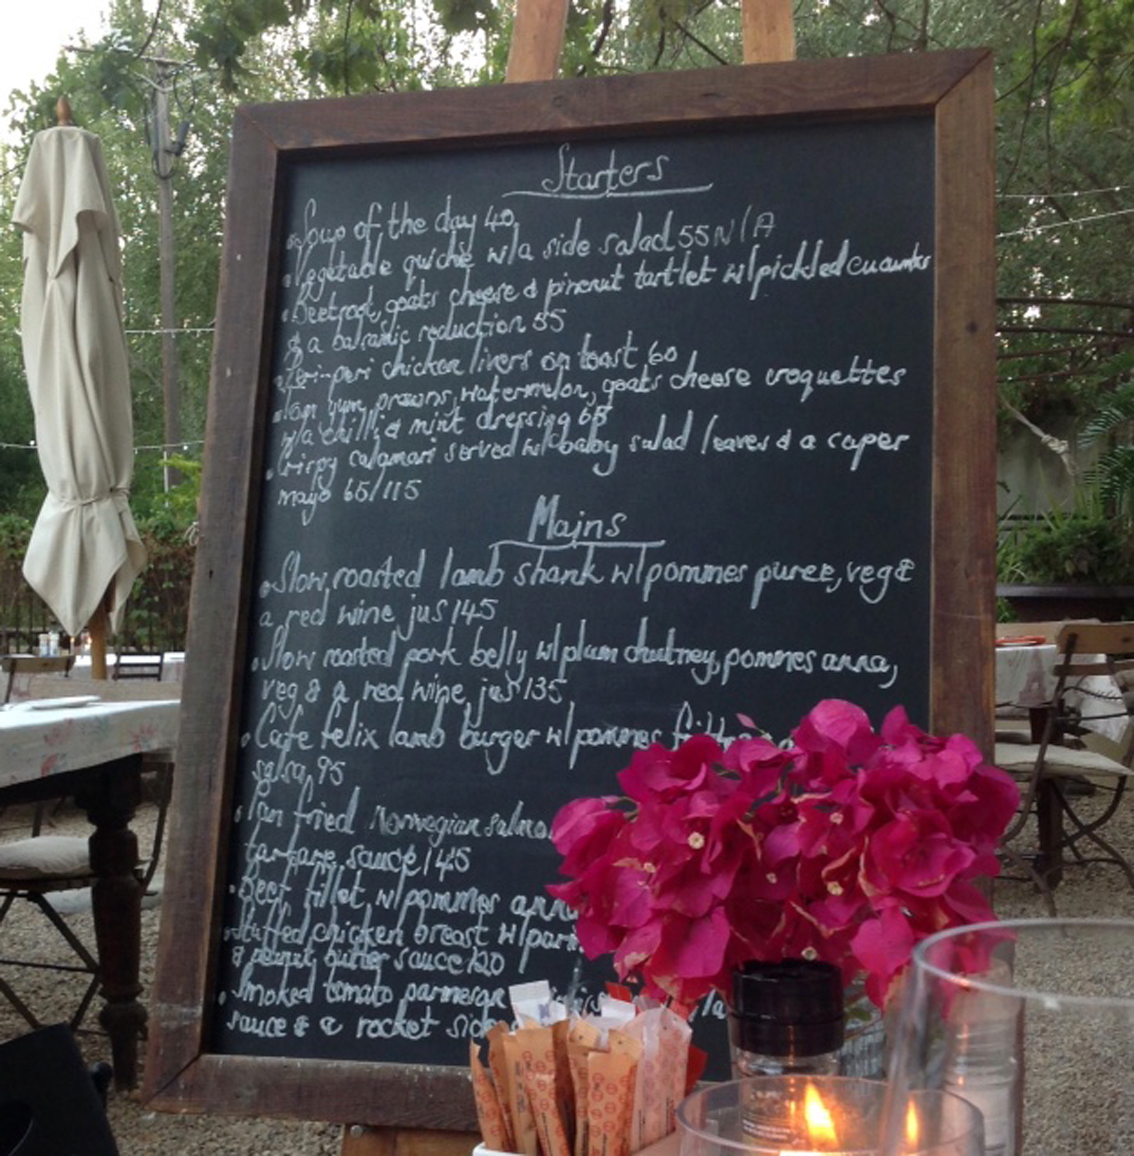 Starters
Soup of the day 40
Vegetable quiche w/a side salad 55 N/A
Beetroot, goats cheese & pinenut tartlet w/pickled cucumber
& a balsamic reduction 55
Peri-peri chicken livers on toast 60
Tom yum prawns, watermelon, goats cheese croquettes
w/a chilli & mint dressing 65
Crispy calamari served w/ baby salad leaves & a caper
mayo 65/115
Mains
Slow roasted lamb shank w/pommes puree, veg &
a red wine jus 145
Slow roasted pork belly w/plum chutney, pommes anna,
veg & a red wine jus 135
Cafe felix lamb burger w/pommes
salsa, 95
Pan fried Norwegian salmon
tartare sauce 145
Beef fillet w/pommes anna
Stuffed chicken breast w/
& peanut butter sauce 120
Smoked tomato parmesan
sauce & a rocket